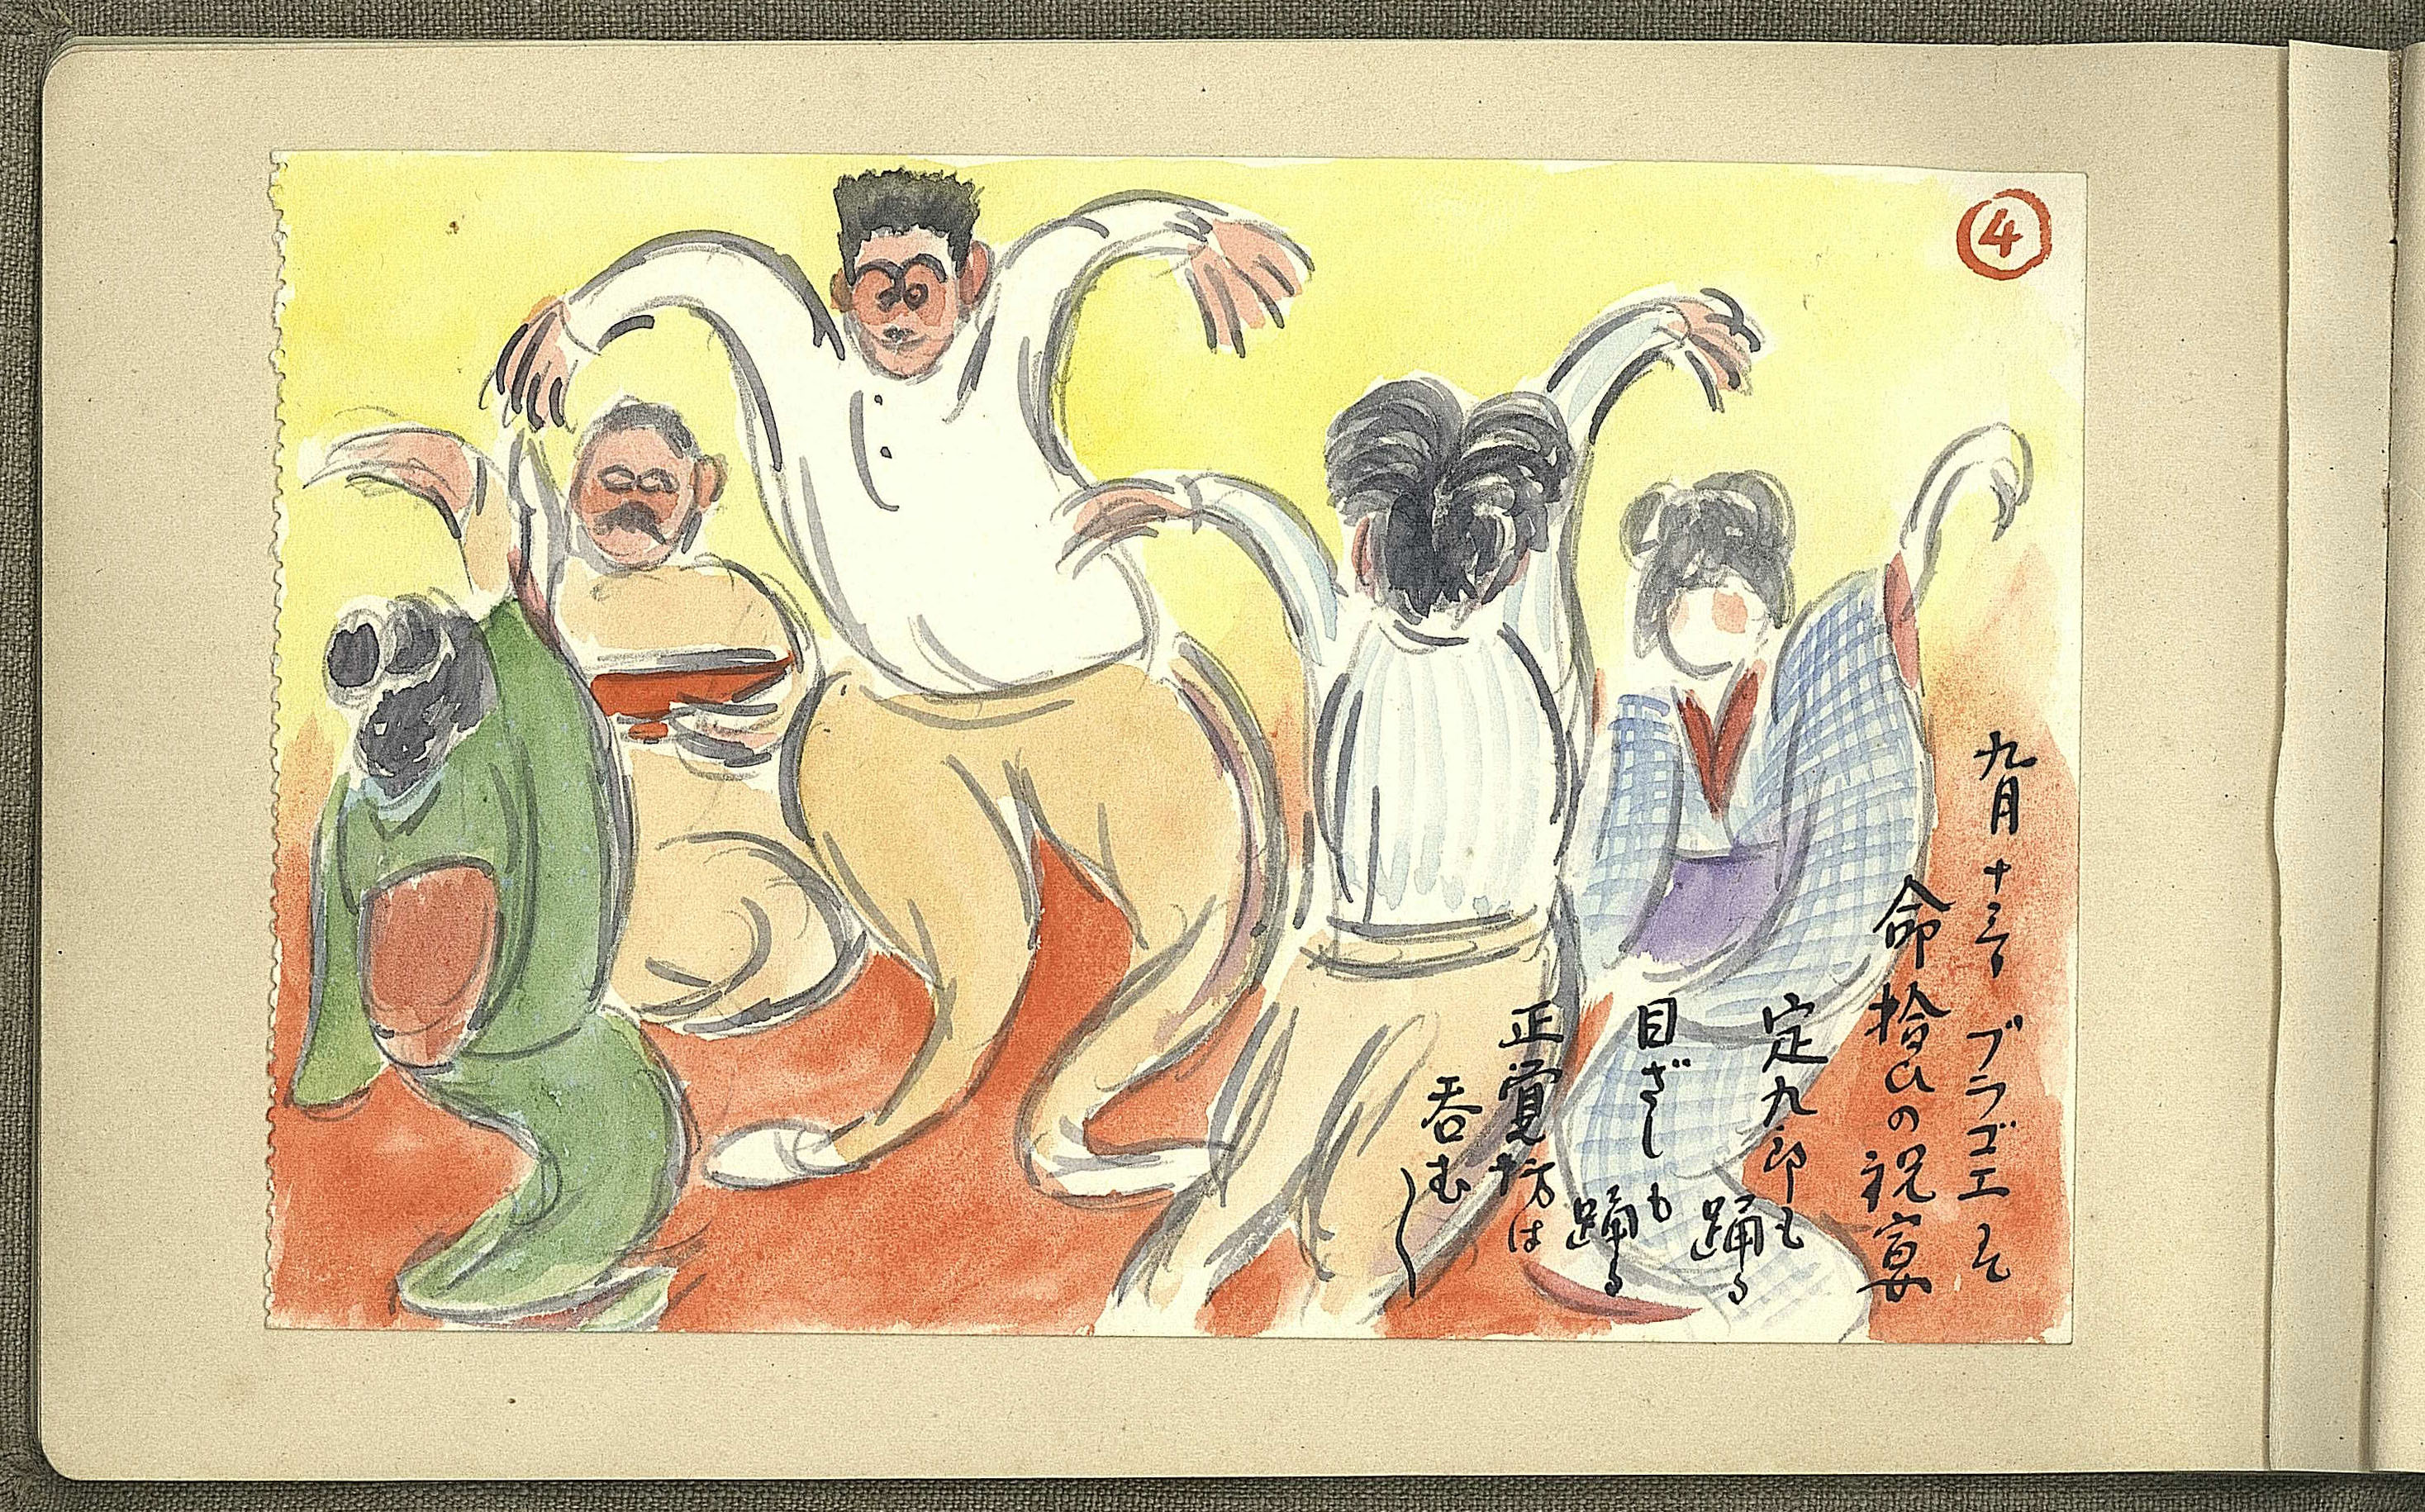 ④
九月十三日 ブラゴエにて
命拾ひの祝宴
定九郎も踊る
目ざしも踊る
正覚坊は
呑む